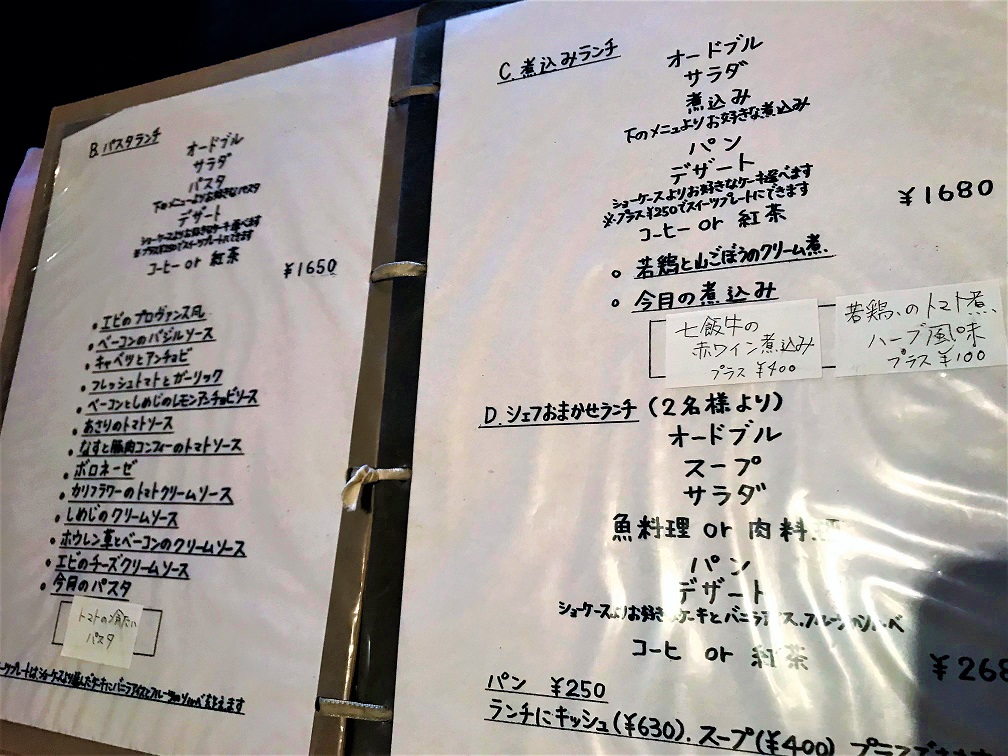 B.パスタランチ
オードブル
サラダ
パスタ
下のメニューよりお好きなパスタ
デザート
ショーケースよりお好きなケーキ選べます
※プラス¥250でスイーツプレートにできます
コーヒー or 紅茶
¥1650
・エビのプロヴァンス風
・ベーコンのバジルソース
・キャベツとアンチョビ
・フレッシュトマトとガーリック
・ベーコンとしめじのレモンアンチョビソース
・あさりのトマトソース
・なすと豚肉コンフィーのトマトソース
・ボロネーゼ
・カリフラワーのトマトクリームソース
・しめじのクリームソース
・ホウレン草とベーコンのクリームソース
・エビのチーズクリームソース
・今月のパスタ
トマトの冷たい
パスタ
C.煮込みランチ
オードブル
サラダ
煮込み
下のメニューよりお好きな煮込み
パン
デザート
ショーケースよりお好きなケーキ選べます
※プラス¥250でスイーツプレートにできます
コーヒー or 紅茶
¥1680
○ 若鶏と山ごぼうのクリーム煮
○ 今月の煮込み
七飯牛の
赤ワイン煮込み
プラス ¥400
若鶏のトマト煮
ハーブ風味
プラス ¥100
D.シェフおまかせランチ (2名様より)
オードブル
スープ
サラダ
魚料理 or 肉料
パン
デザート
ショーケースよりお好き ケーキとバニラアイス、フルーツの
コーヒ or 紅茶
¥268
パン ¥250
ランチにキッシュ(¥630)、スープ(¥400)